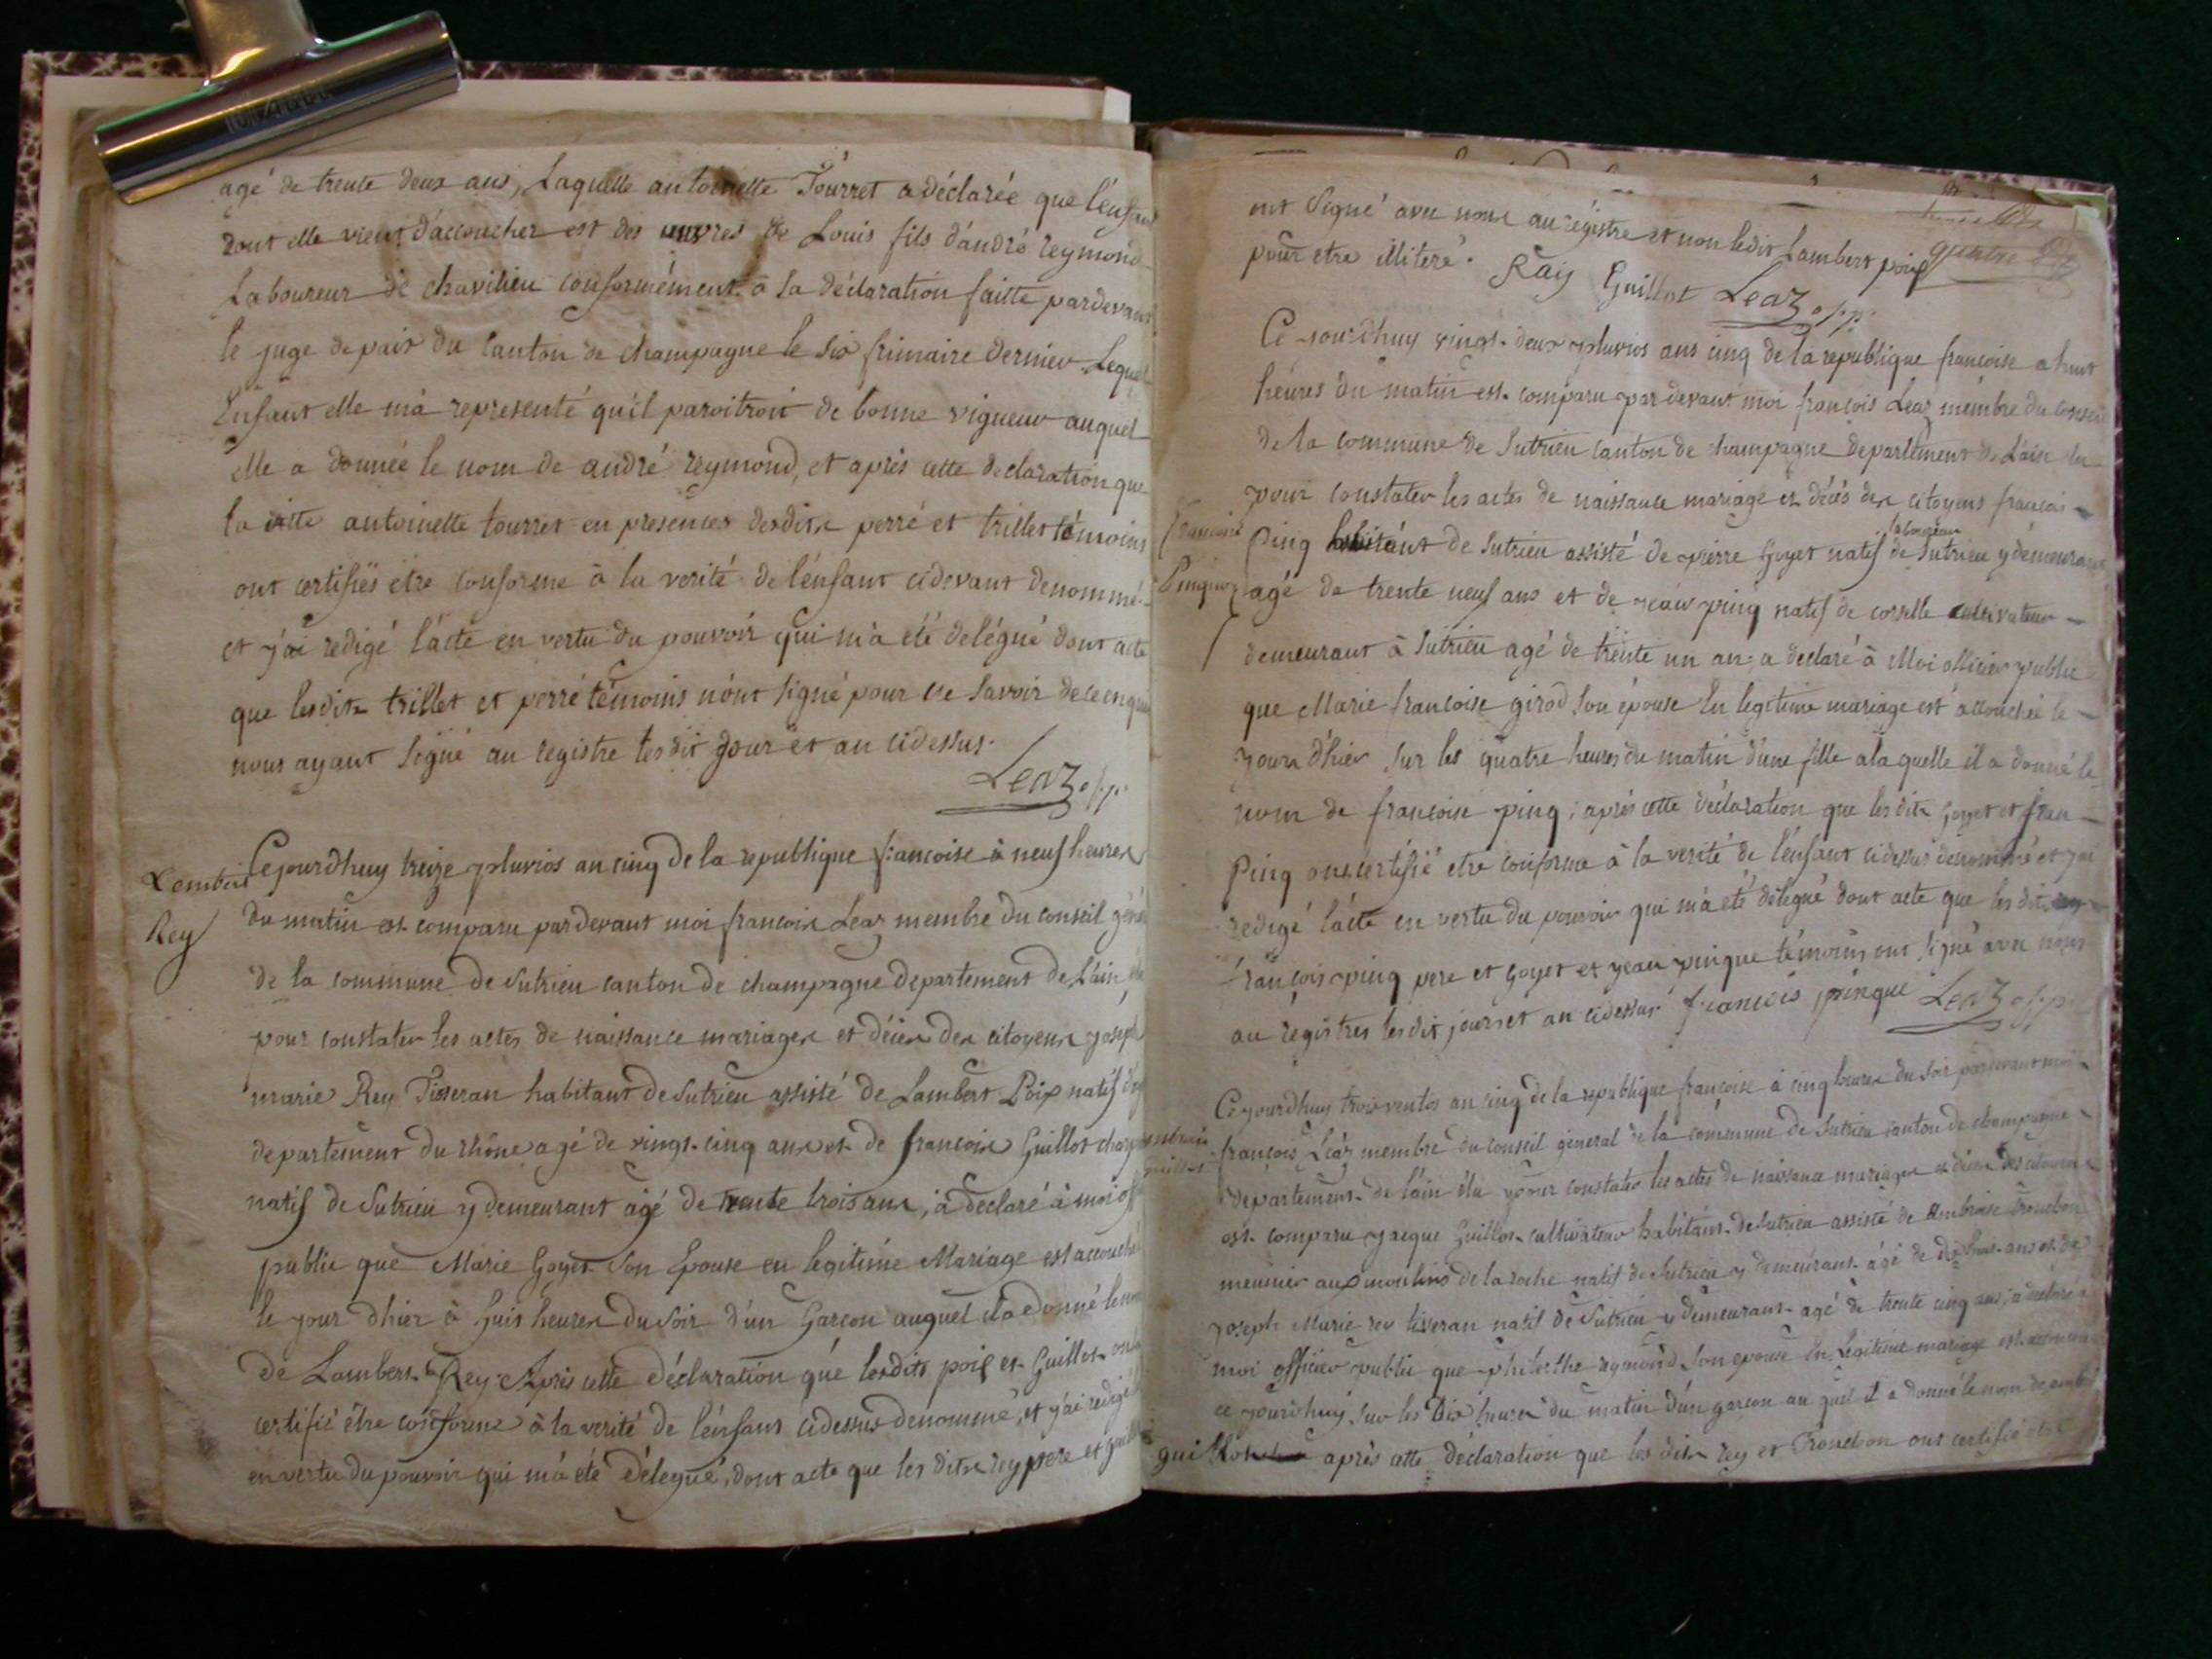 agé de trente deux ans, Laquelle antoinette Tourret a déclarée que l'énfant
dont elle vient d'accoucher est des œuvres de Louis fils d'andré reymond
Laboureur de chavilieu conformément à la déclaration faitte pardevant
le juge de paix du canton de champagne le six frimaire dernier. Lequel
Enfant elle m'a representé qu'il paroitroit de bonne vigueur auquel
elle a donnée le nom de andré reymond, et après cette declaration que
la ditte antoinette tourret en presences desdits perré et trillet témoins
ont certifiés etre conforme à la verité de l'énfant cidevant denommé
et j'ai redigé l'acte en vertu du pouvoir qui m'a été delégué dont acte
que lesdits trillet et perré témoins n'ont signé pour ne savoir de ce enquis
nous ayant signé au registre lesdit jour et an cidessus.
Leaz o.p.
Lambert
Rey
Cejourdhuy treize pluvios an cinq de la republique francoise à neuf heures
du matin est comparu pardevant moi francois Leaz membre du conseil géné
de la commune de Sutrieu canton de champagne departement de L'ain élu
pour constater les actes de naissance mariages et décès des citoyens joseph
marie Rey Tisseran habitant de Sutrieu assisté de Lambert Poix natif du
departement du rhône agé de vingt-cinq ans et de francois Guillot
natif de Sutrieu y demeurant agé de trente trois ans, a declaré à moi off
public que Marie Goyet Son Epouse en legitime Mariage est accouchée
le jour d'hier à huis heures du soir d'un Garcon auquel il a donné le nom
de Lambert Rey. Après cette déclaration que lesdits poix et Guillot ont
certifié être conforme à la verité de l'énfant cidessus denommé, et j'ai redigé
en vertu du pouvoir qui m'a été délégué, dont acte que les dits rey pere et guillot
ont Signé avec nous au régistre et non ledit Lambert poix
pour etre illiteré. Raiy Guillot Leaz o.p.
quatre
Ce jourdhuy vingt-deux pluvios ans cinq de la republique francoise a huit
heures du matin est comparu par devant moi francois Leaz membre du conseil
de la commune de Sutrieu canton de champagne departement de L'ain élu
pour constater les actes de naissance mariage et décès des citoyens francois
francoise
Pinque
Pinq habitant de Sutrieu assisté de pierre Goyet natif de Sutrieu laboureur y demeurant
agé de trente neuf ans et de jean pinq natif de corcelle cultivateur
demeurant à Sutrieu agé de trente un an; a declaré à Moi officier public
que Marie francoise girod Son épouse En legitime mariage est accouchée le
jour d'hier Sur les quatre heures du matin d'une fille a laquelle il a donné le
nom de francoise pinq; après cette déclaration que lesdits goyet et jean
Pinq ont certifié etre conforme à la verité de l'énfant cidessus denommé et j'ai
redigé l'acte en vertu du pouvoir qui m'a été délégué dont acte que les dits
francois pinq pere et goyet et jean pinque témoins ont signé avec nous
au registres lesdit jours et an cidessus. francois pinque Leaz o.p.
Ce jourdhuy trois ventos an cinq de la republique françoise à cinq heures du soir pardevant moi
guillot
françois Léaz membre du conseil general de la commune de Sutrieu canton de champagne
departement de l'ain élu pour constater les actes de naissance mariages et décès des citoyens
est comparu jacque Guillot cultivateur habitant de Sutrieu assisté de Ambroise Tronchon
meunier aux moulins de la roche natif de Sutrieu y demeurant agé de dix huit ans et de
joseph Marie rey tiseran natif de Sutrieu y demeurant agé de trente cinq ans, a declaré à
moi officier public que philiberthe reymond Son epouse En Legitime mariage est accouchée
ce jourdhuy Sur les Dix heures du matin d'un garcon au quel il a donné le nom de
guillot après cette déclaration que les dits rey et Tronchon ont certifié être